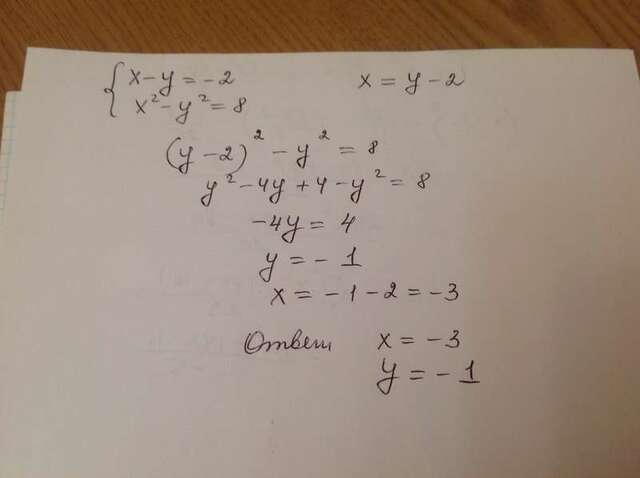 { x-y=-2 x = y-2
x²-y²=8
(y-2)²-y²=8
y²-4y+4-y²=8
-4y=4
y=-1
x=-1-2=-3
Ответ x=-3
y=-1